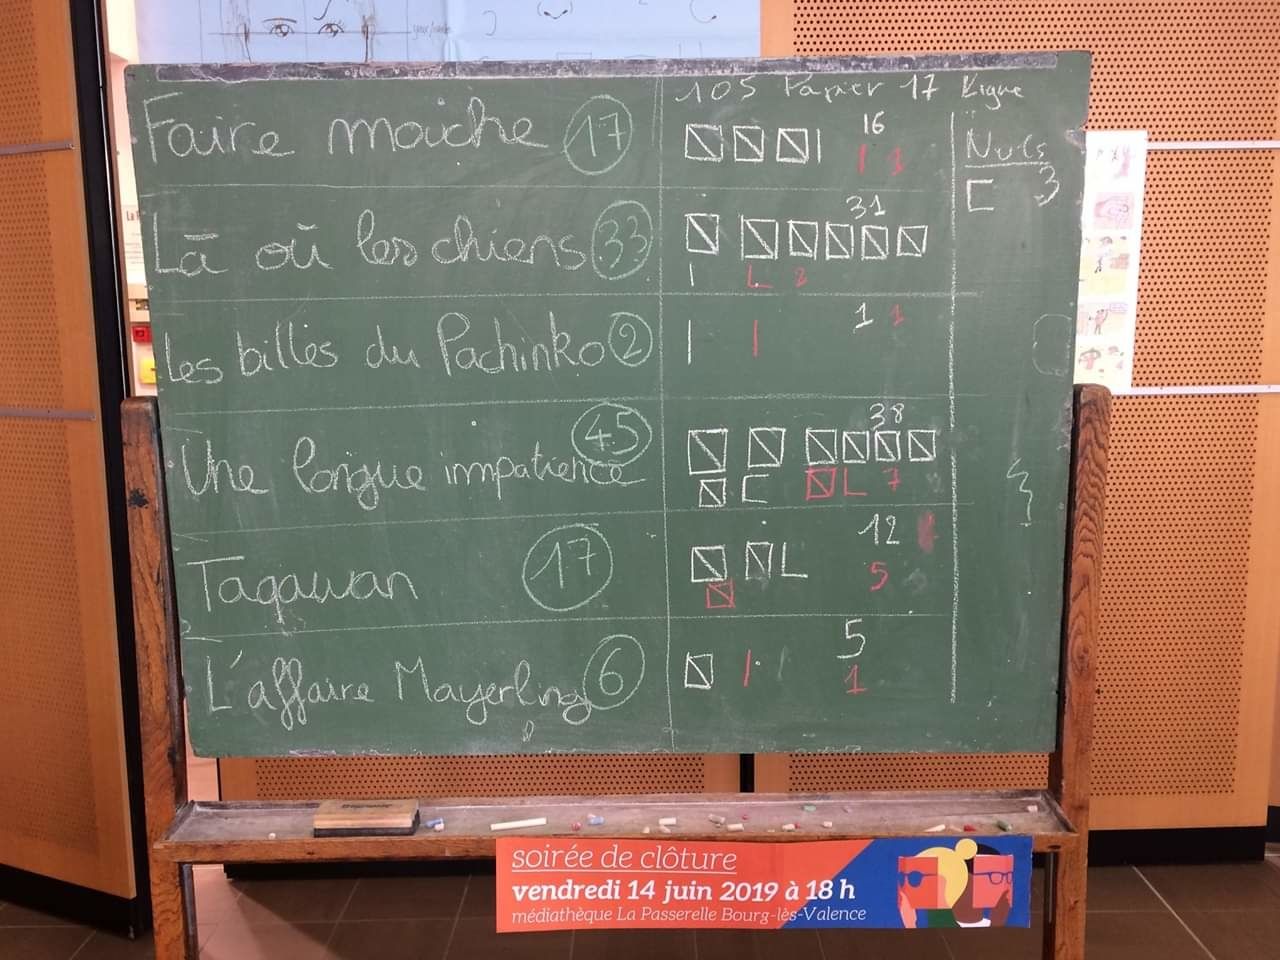 105 Papier 17 Ligne
Faire mouche 17
16
1 1
Nuls
3
Là où les chiens 33
31
2
Les billes du Pachinko 2
1 1
Une longue impatience 45
38
7
Taqawan 17
12
5
L'affaire Mayerling 6
5
1
soirée de clôture
vendredi 14 juin 2019 à 18 h
médiathèque La Passerelle Bourg-lès-Valence